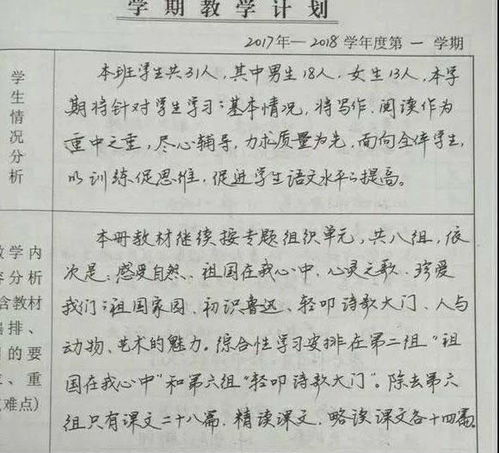 学期教学计划
2017年—2018学年度第一学期
学生情况分析
本班学生共31人，其中男生18人，女生13人，本学
期将针对学生学习的基本情况，将写作、阅读作为
重中之重，尽心辅导，力求质量为先，面向全体学生，
以训练促思维，促进学生语文水平的提高。
教学内
容分析
含教材
编排、
的要
、重
难点)
本册教材继续按专题组织单元，共八组，依
次是：感受自然、祖国在我心中、心灵之歌、珍爱
我们的祖国家园、初识鲁迅、轻叩诗歌大门、人与
动物、艺术的魅力。综合性学习安排在第二组“祖
国在我心中”和第六组“轻叩诗歌大门”。除去第六
组只有课文二十八篇，精读课文、略读课文各十四篇